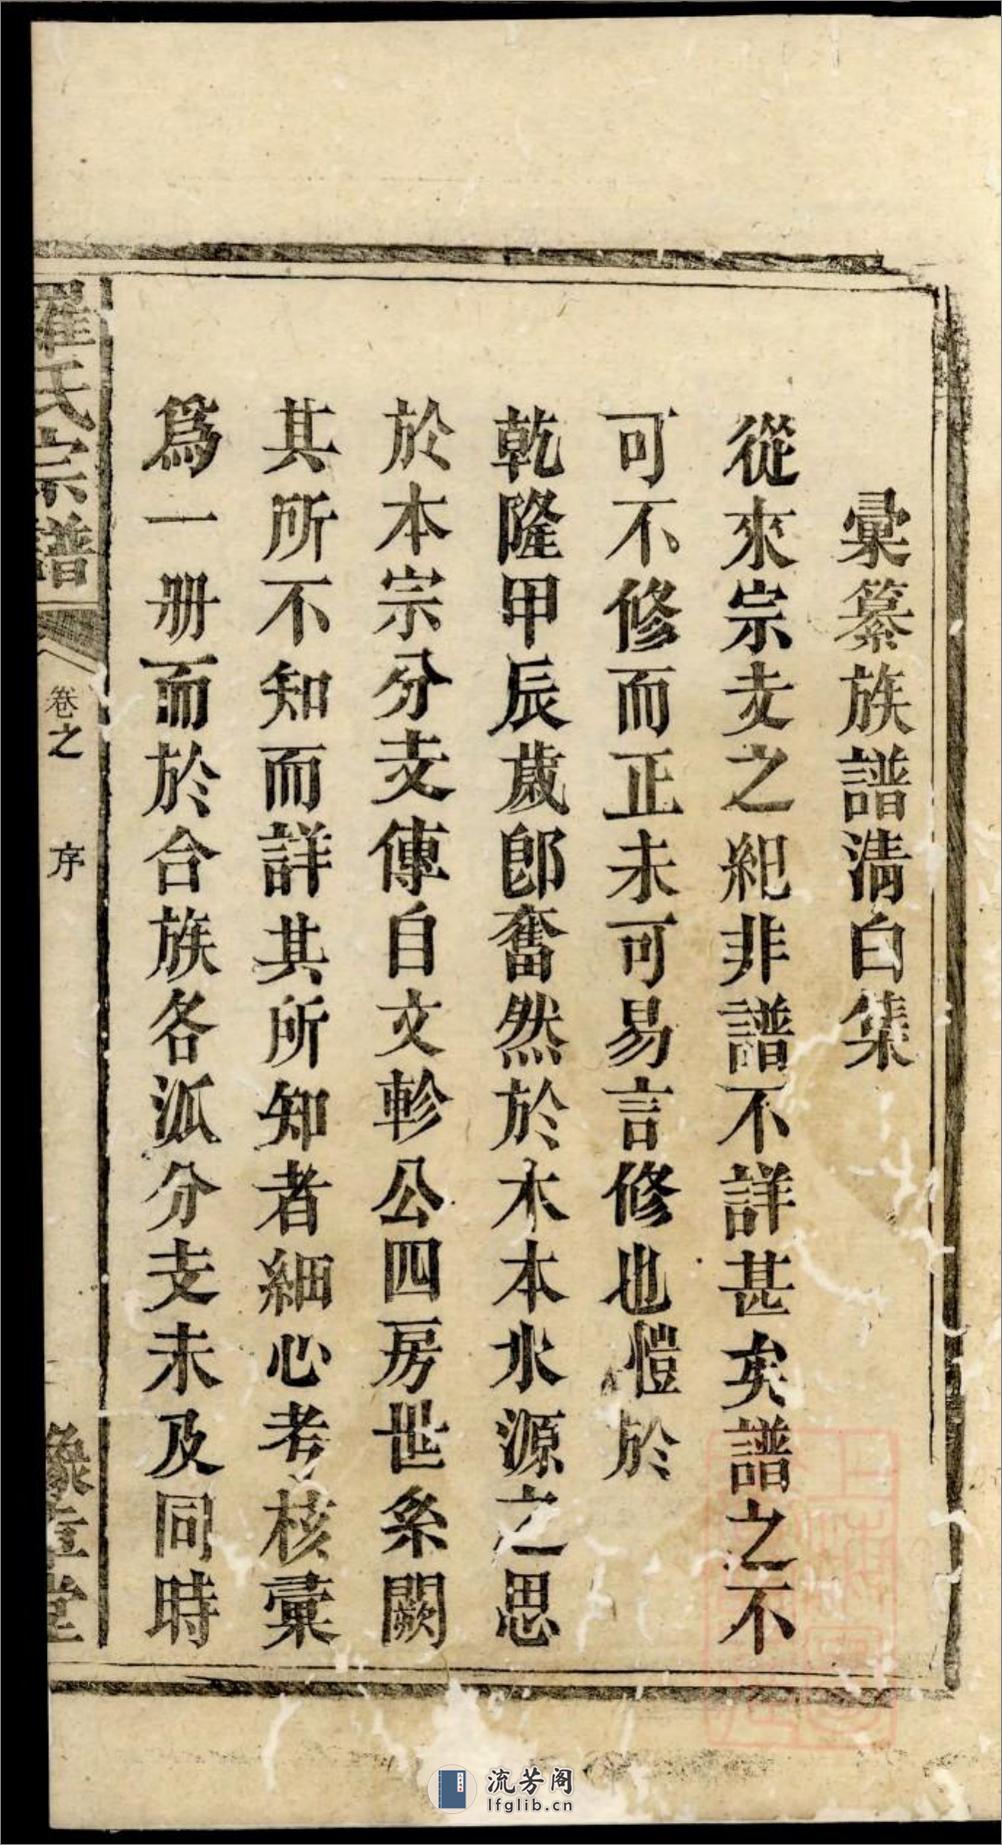 彙纂族譜淸白集
從來宗支之紀非譜不詳甚矣譜之不
可不修而正未可易言修也愷於
乾隆甲辰歲卽奮然於木本水源之思
於本宗分支傳自文軫公四房世系闕
其所不知而詳其所知者細心考核彙
爲一册而於合族各派分支未及同時
羅氏宗譜
卷之 序
豫章堂
流芳阁
lfglib.cn